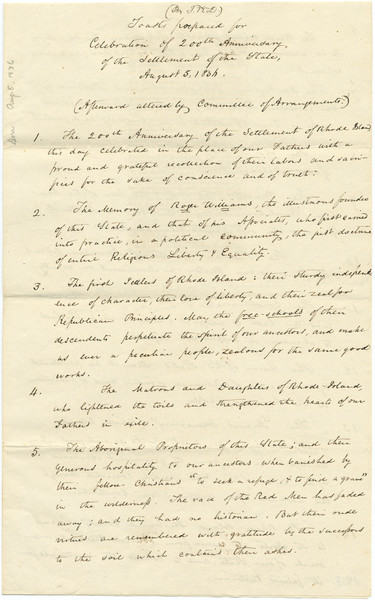 (By T.W.D.)
Toasts prepared for
Celebration of 200th Anniversary,
of the Settlement of the State,
August 5, 1836.
(Afterward altered by Committee of Arrangements.)
1. The 200th Anniversary of the Settlement of Rhode Island,
this day celebrated in the place of our Fathers with a
proud and grateful recollection of their labors and sacri-
fices for the sake of conscience and of truth.
2. The Memory of Roger Williams, the illustrious founder
of this State, and that of his Associates, who first carried
into practice, in a political community, the just doctrine
of entire Religious Liberty & Equality.
3. The first Settlers of Rhode Island: their sturdy independ-
ence of character, their love of liberty, and their zeal for
Republican Principles. May the free-schools of their
descendents perpetuate the spirit of our ancestors, and make
us ever a peculiar people, zealous for the same good
works.
4. The Matrons and Daughters of Rhode-Island,
who lightened the toils and strengthened the hearts of our
Fathers in exile.
5. The Aboriginal Proprietors of this State; and their
generous hospitality to our ancestors when banished by
their fellow Christians "to seek a refuge, & to find a grave"
in the wilderness. The race of the Red Men has faded
away; and they had no historian. But their rude
virtues are remembered with gratitude by the successors
to the soil which contains their ashes.
Aug 5, 1836